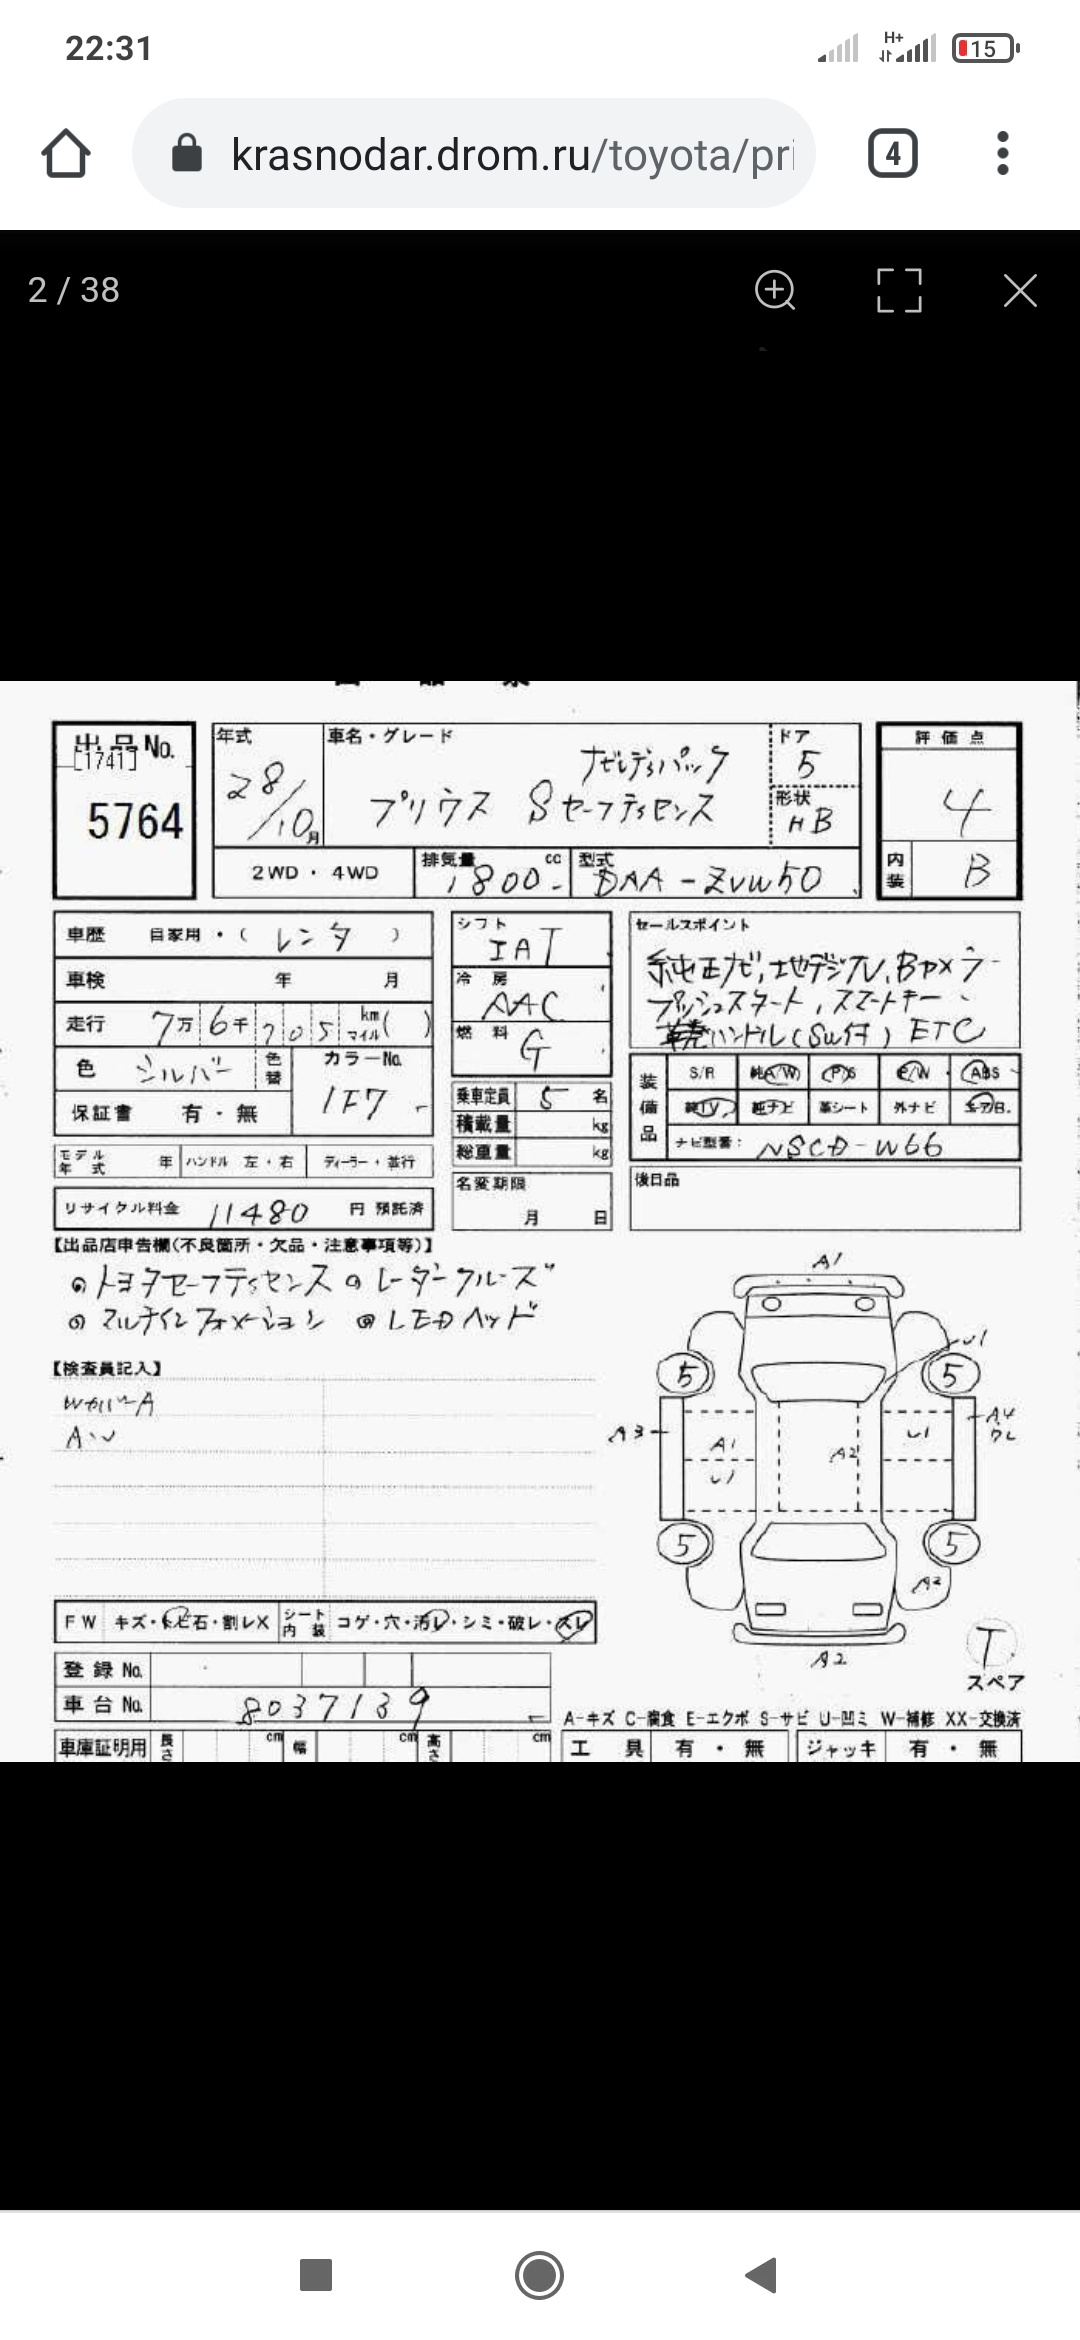 22:31
H+
15
krasnodar.drom.ru/toyota/pri
4
2 / 38
出品No.
[1741]
5764
年式
28/10月
車名・グレード
ナビレディパック
プリウス Sセーフティセンス
ドア
5
形状
HB
評価点
4
内装
B
2WD・4WD
排気量
1800
cc
型式
DAA-ZVW50
車歴 自家用・( レンタ )
車検 年 月
走行 7万6千705km マイル( )
色 シルバー
色替
カラーNo.
1F7
保証書 有・無
モデル年式 年
ハンドル 左・右
ディーラー・並行
リサイクル料金 11480 円 預託済
シフト
IAT
冷房
AAC
燃料
G
乗車定員 5 名
積載量 kg
総重量 kg
名変期限
月 日
セールスポイント
純正ナビ,地デジTV,Bカメラ
プッシュスタート,スマートキー、
革巻ハンドル(SW付) ETC
装備品
S/R 純A/W P/S P/W ABS
純TV 純ナビ 革シート 外ナビ エアB.
ナビ型番: NSCD-W66
後日品
【出品店申告欄(不良箇所・欠品・注意事項等)】
トヨタセーフティセンス レーダークルーズ
マルチインフォメーション LEDヘッド
【検査員記入】
A・U
FW キズ・トビ石・割レX
シート内装 コゲ・穴・汚レ・シミ・破レ・スレ
登録No.
車台No. 8037139
A1
U1
5
5
A3
A1
U1
A2
U1
A4
5
5
A2
A2
T
スペア
A-キズ C-腐食 E-エクボ S-サビ U-凹ミ W-補修 XX-交換済
車庫証明用 長さ cm 幅 cm 高さ cm
工具 有・無
ジャッキ 有・無